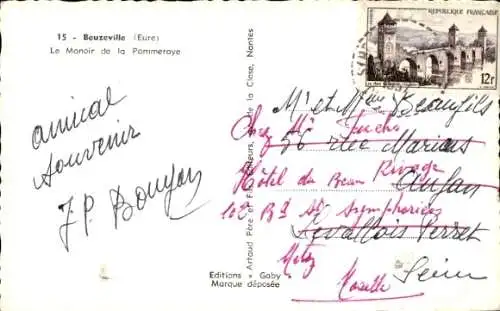 15 - Beuzeville (Eure)
Le Manoir de la Pommeraye
amical
souvenir
J.P. Bouyan
Artaud Père et Fils, Éditeurs, rue de la Close, Nantes
Editions - Gaby -
Marque déposée
REPUBLIQUE FRANÇAISE
12F
Mr et Mme Beaufils
Chez Mr Fuchs
56 rue Marius
Aufan
Hôtel du Beau Rivage
10 Bd St Symphorien
Levallois Perret
Metz
Seine
Moselle